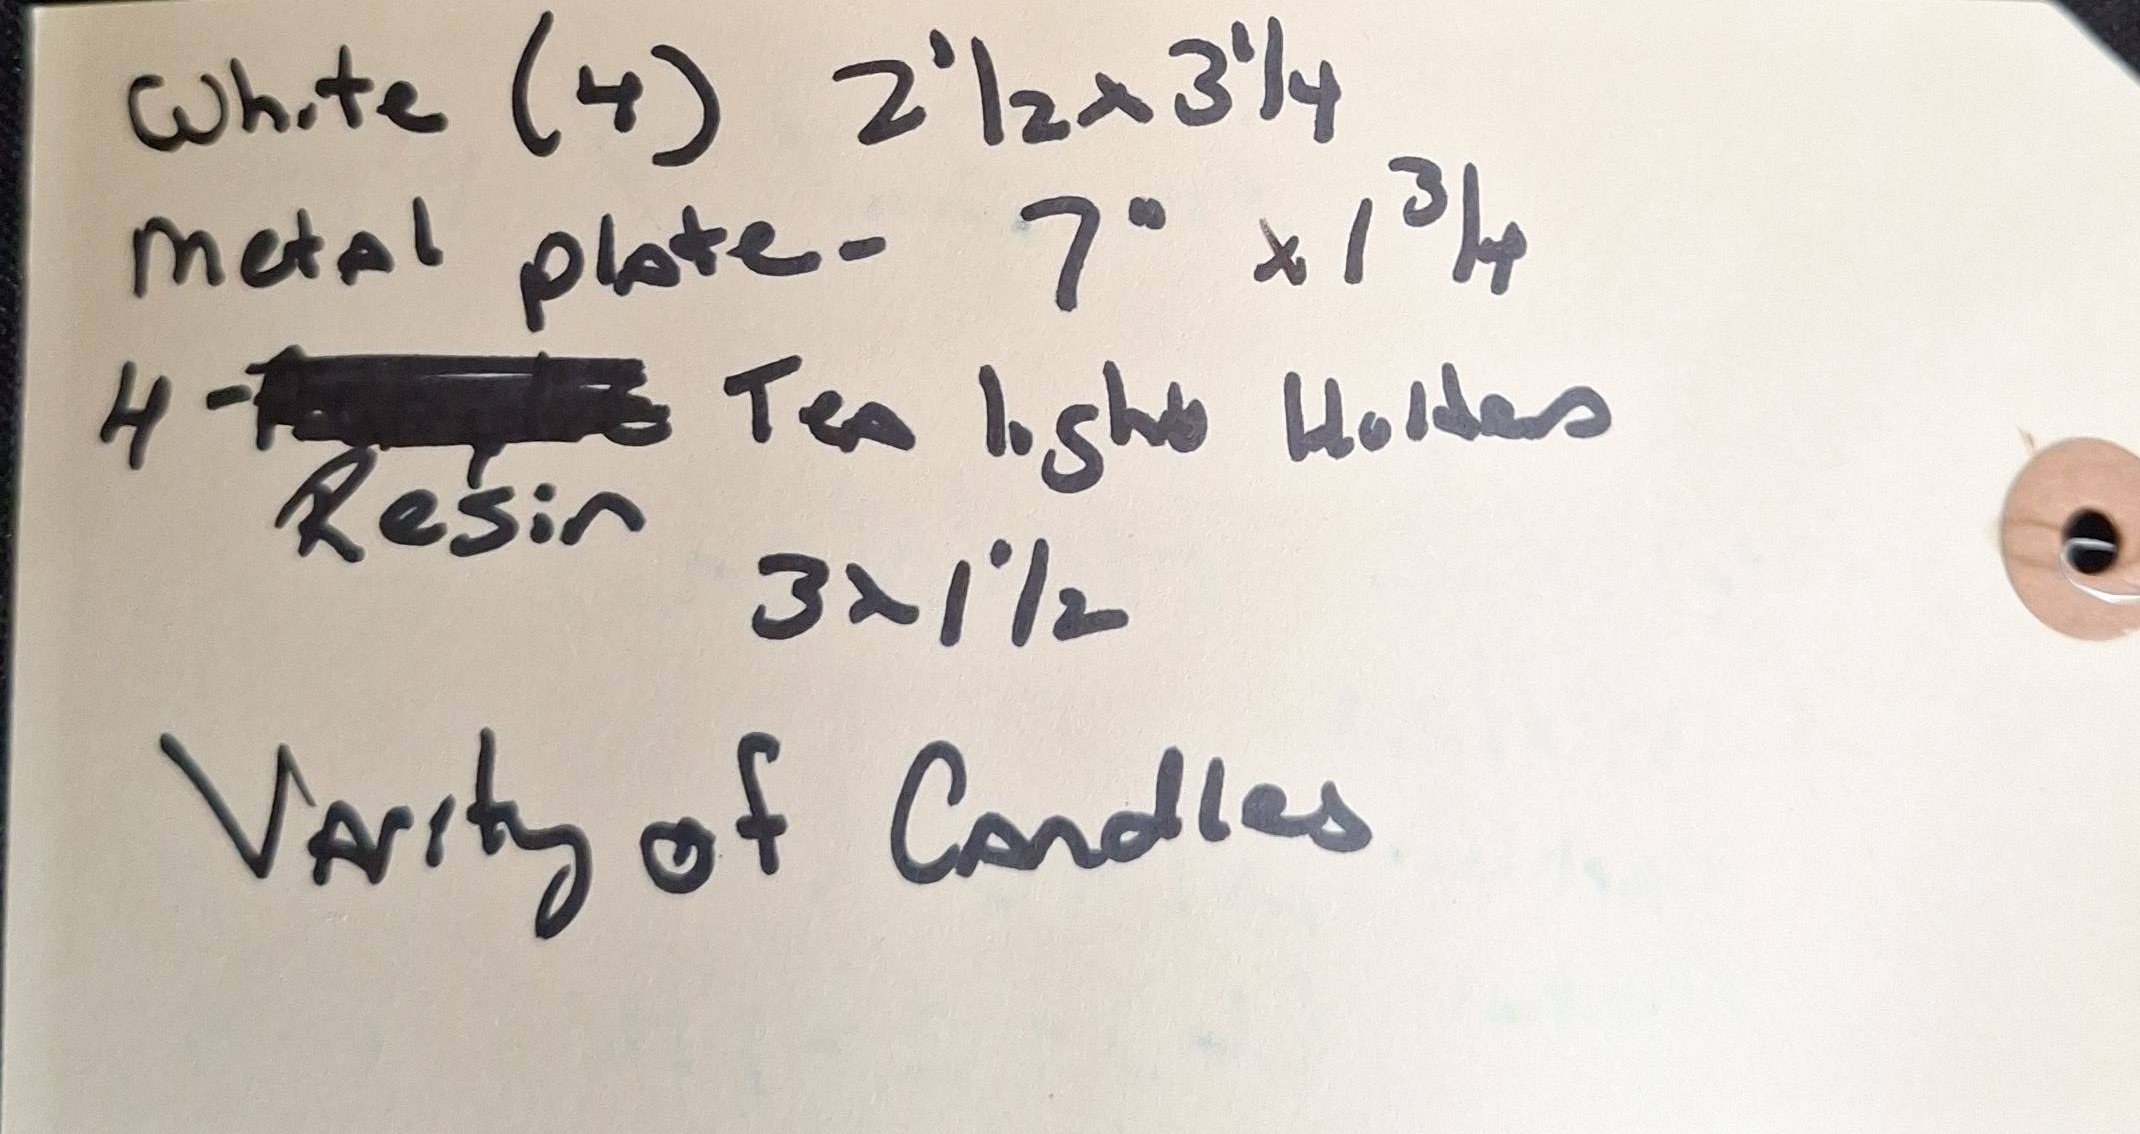 White (4) 2 1/2 x 3 1/4
Metal plate - 7" x 1 3/4
4 - Tea light Holders
Resin
3 x 1 1/2
Varity of Candles